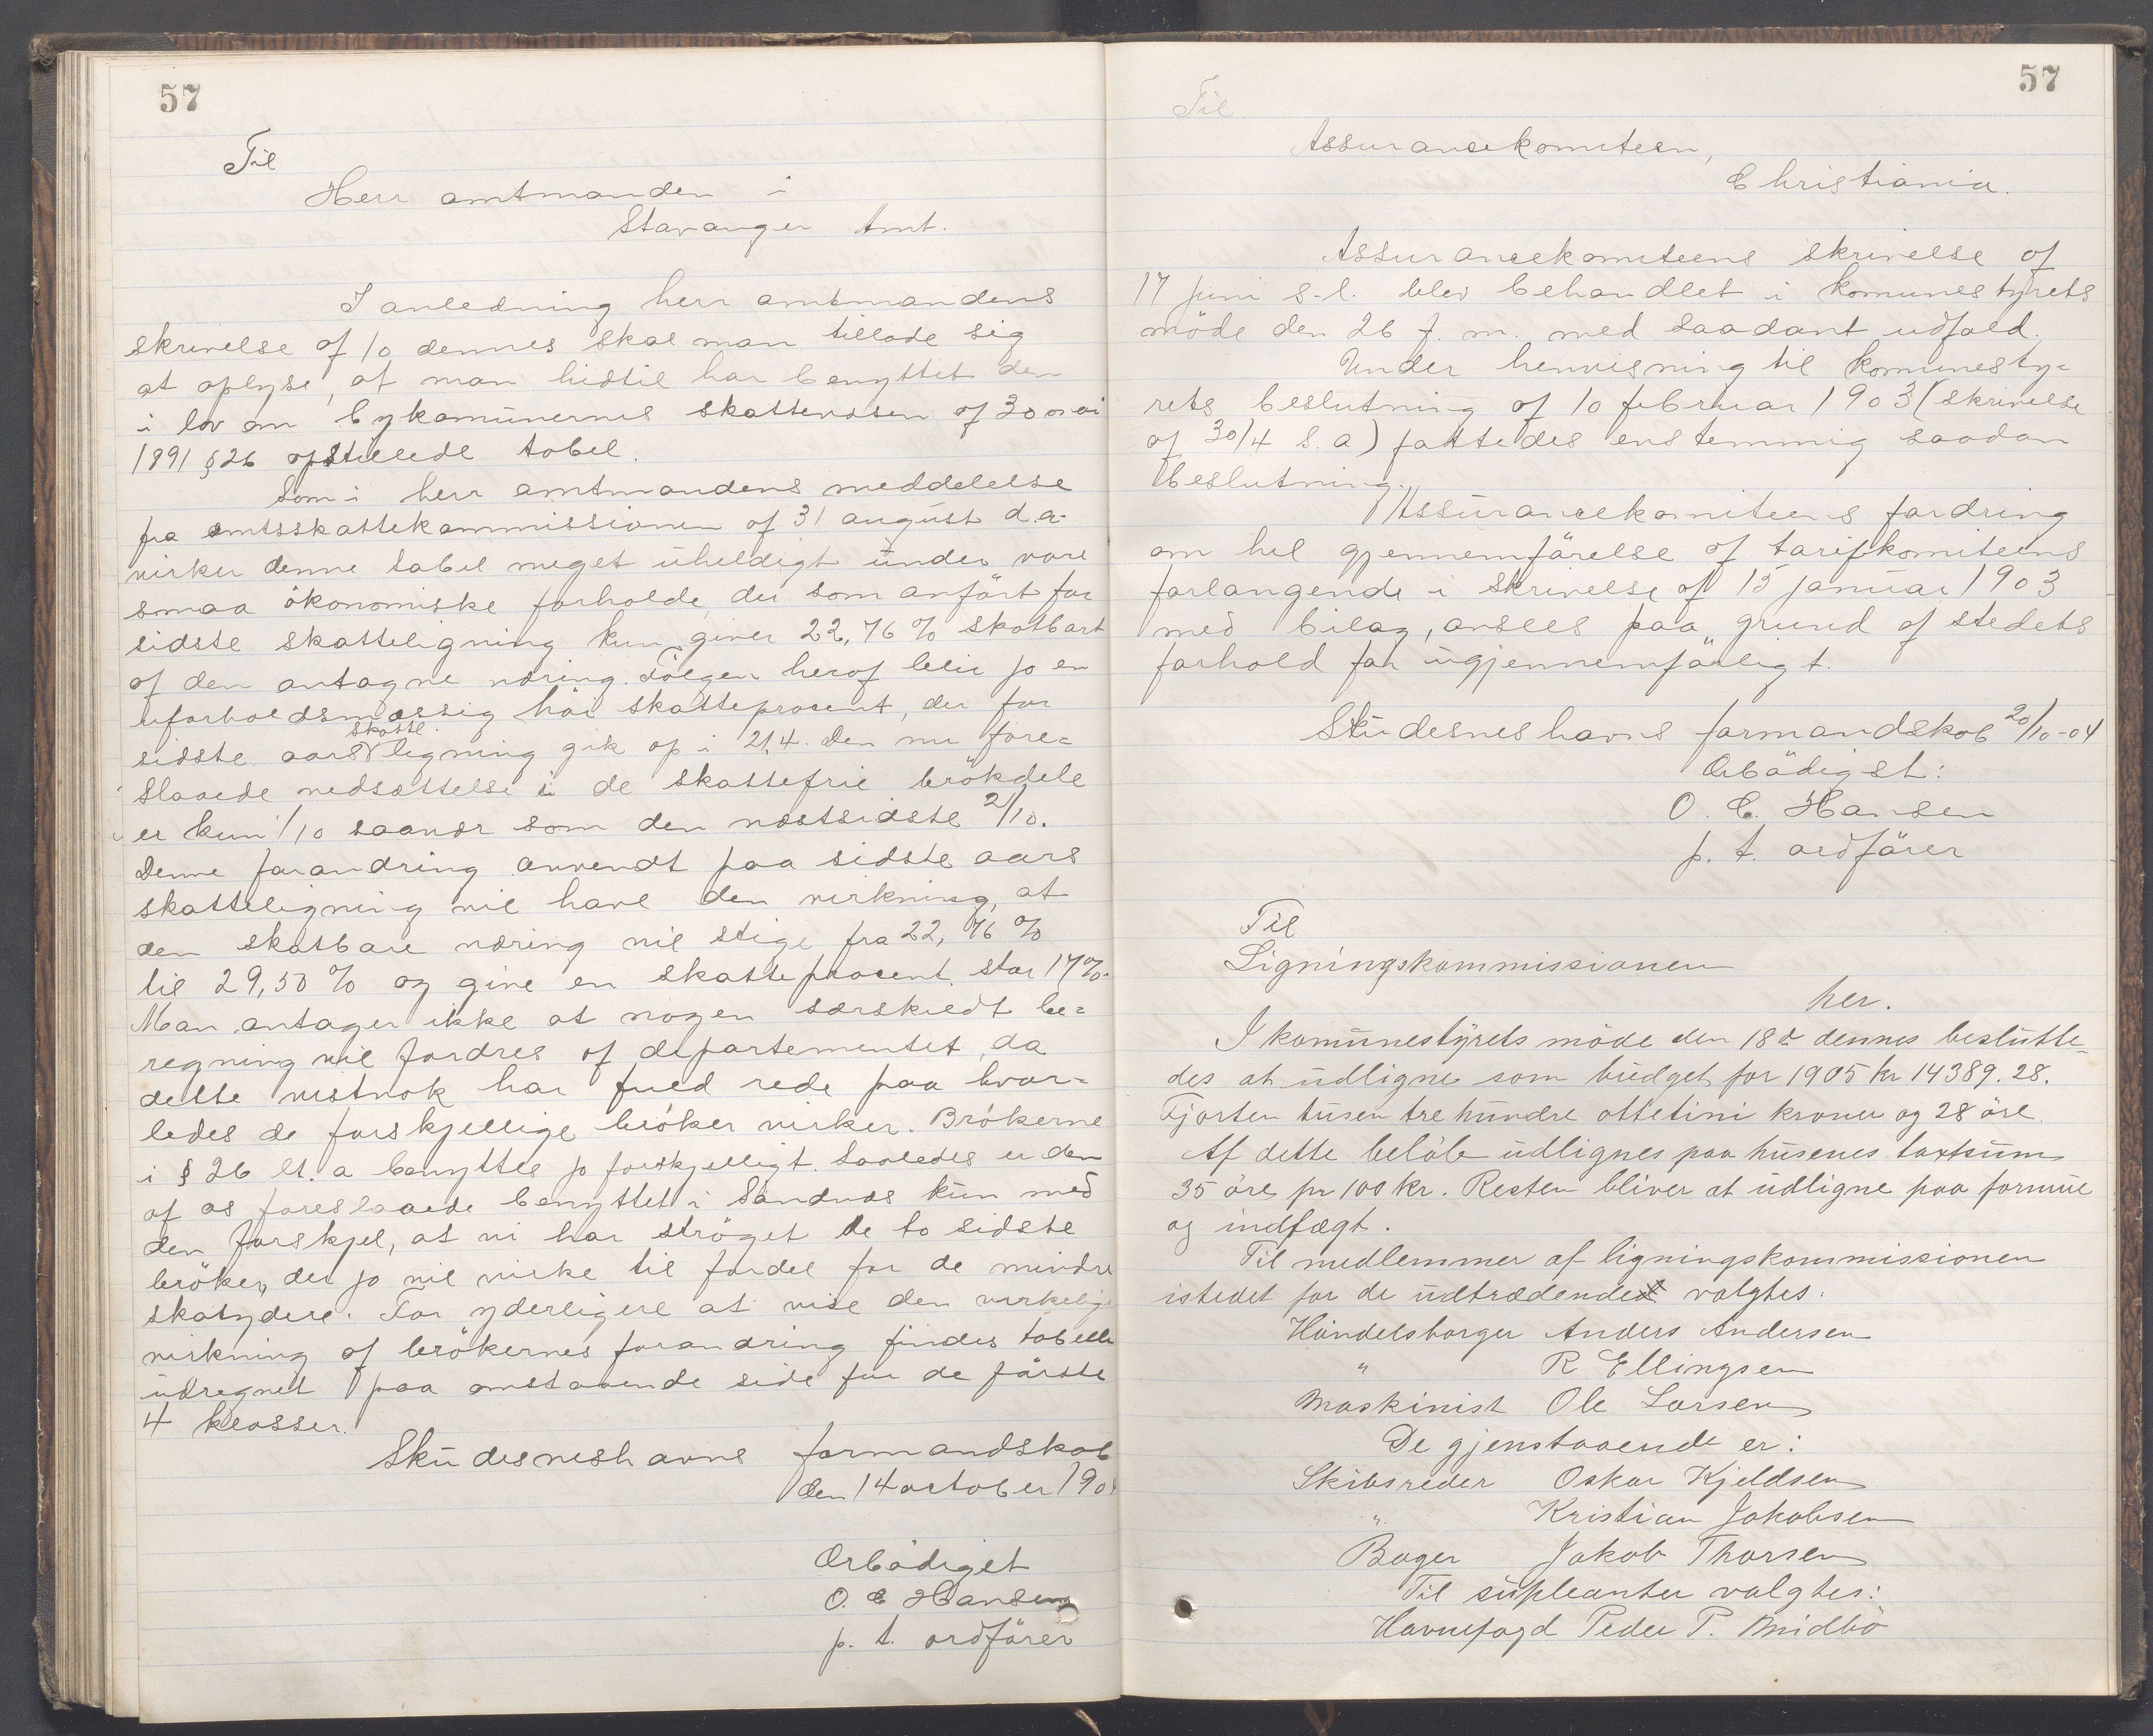 57
Til
Herr amtmanden i
Stavanger Amt.
I anledning herr amtmandens
skrivelse af 10 dennes skal man tillade sig
at oplyse, at man hidtil har benyttet den
i lov om bykomünernes skattevæsen af 30 mai
1891 § 26 opstillede tabel.
Som i herr amtmandens meddelelse
fra amtsskattekommissionen af 31 august d.a.
virker denne tabel meget üheldigt ünder vore
smaa ökonomiske forholde, der som anfört for
sidste skatteligning kun giver 22,76 % skatbart
af den antagne næring. Fölgen heraf blir jo en
uforholdsmæssig höi skatteprocent, der for
sidste aars skatteligning gik op i 21,4. Den nu fore=
slaaede nedsættelse i de skattefrie brökdele
er kun 1/10 saanær som den næstsidste 2/10.
Denne forandring anvendt paa sidste aars
skatteligning vil have den virkning, at
den skatbare næring vil stige fra 22,76 %
til 29,50 % og give en skatteprocent stor 17%.
Man antager ikke at nogen særskildt be=
regning vil fordres af departementet, da
dette vistnok har fuld rede paa hvor=
ledes de forskjellige bröker virker. Brökerne
i § 26 lt. a benyttes jo forskjelligt. Saaledes er den
af os foreslaaede benyttet i Sandnæs kün med
den forskjel, at vi har ströget de to sidste
bröker, der jo vil virke til fordel for de mindre
skatydere. For yderligere at vise den virkelige
virkning af brökernes forandring findes tabelle
üdregnet paa omstaaende side for de förste
4 klasser.
Sküdesneshavns formandskab
den 14 october 190
Ærbödigst
O. C Hansen
p. t. ordförer
57
Til
Assurancekomiteen,
Christiania.
Assurancekomiteens skrivelse af
17 juni s.l. blev behandlet i komunestyrets
möde den 26 f. m. med saadant udfald.
Under henvisning til komunesty=
rets beslutning af 10 februar 1903 (skrivelse
af 30/4 s.a) fattedes enstemmig saadan
beslutning.
"Assürancekomiteens fordring
om hel gjennemförelse af tarifkomiteens
forlangende i skrivelse af 15 januar 1903
med bilag, ansees paa grund af stedets
forhold for ügjennemförligt."
Sküdesneshavns formandskab 20/10-04
Ærbödigst:
O. C. Hansen
p. t. ordförer
Til
Ligningskommissionen
her.
I komünestyrets möde den 18de dennes beslütte=
des at üdligne som büdget for 1905 kr 14389.28.
Fjorten tüsen tre hündre ottetini kroner og 28 öre.
Af dette belöb üdlignes paa hüsenes taxtsüm
35 öre pr 100 kr. Resten bliver at üdligne paa formüe
og indtægt.
Til medlemmer af ligningskommissionen
istedet for de üdtrædende valgtes.
Handelsborger Anders Andersen
" R Ellingsen
Maskinist Ole Larsen
De gjenstaaende er:
Skibsreder Oskar Kjeldsen
" Kristian Jakobsen
Bager Jakob Thorsen
Til süpleanter valgtes:
Havnefogd Peder P. Midbö